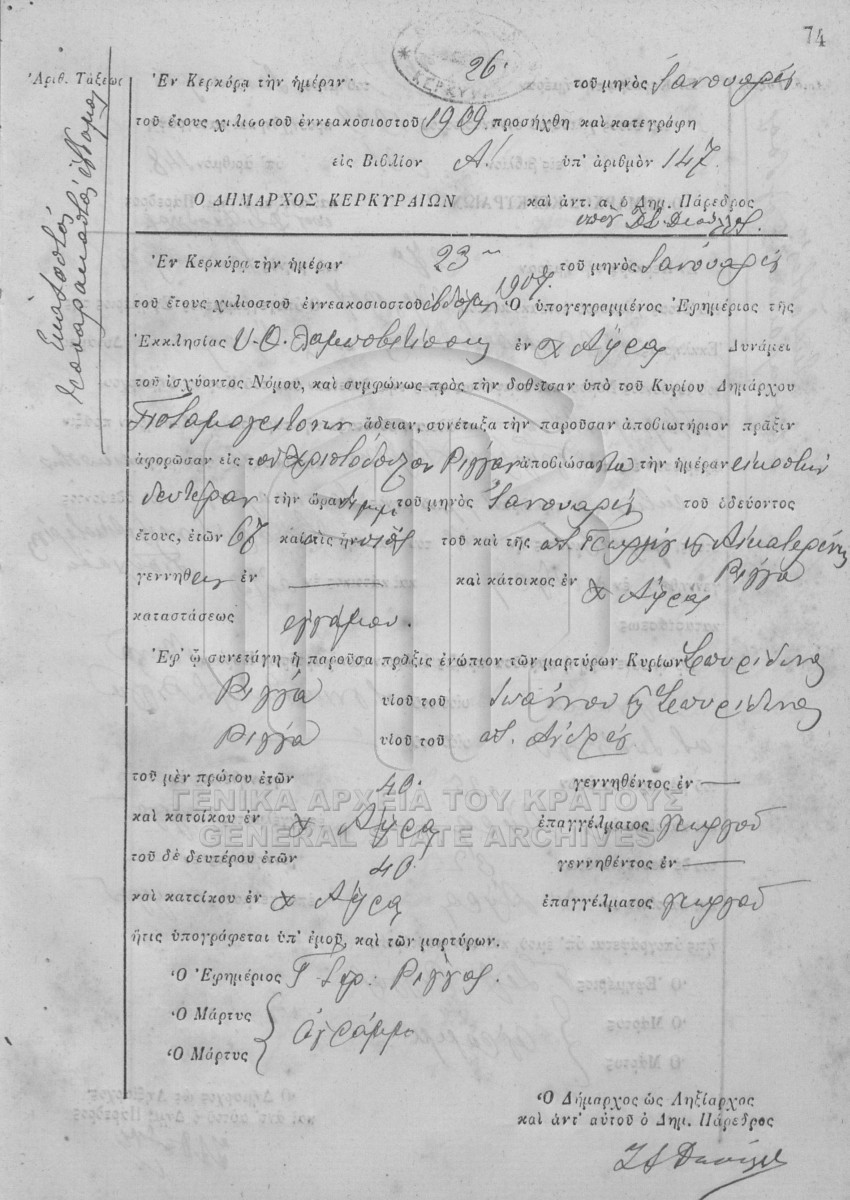 74
26.
ΚΕΡΚΥ
Ἀριθ. Τάξεως
Ἑκατοστὸς
Ἐν Κερκύρᾳ τὴν ἡμέραν 26. τοῦ μηνὸς Ἰανουαρίου
τοῦ ἔτους χιλιοστοῦ ἐννεακοσιοστοῦ 1909 προσήχθη καὶ κατεγράφη
εἰς Βιβλίον Α. ὑπ' ἀριθμὸν 147.
Ο ΔΗΜΑΡΧΟΣ ΚΕΡΚΥΡΑΙΩΝ καὶ ἀντ. α. ὁ Δημ. Πάρεδρος
Ἐν Κερκύρᾳ τὴν ἡμέραν 23 τοῦ μηνὸς Ἰανουαρίου
τοῦ ἔτους χιλιοστοῦ ἐννεακοσιοστοῦ Ὁ ὑπογεγραμμένος Ἐφημέριος τῆς
Ἐκκλησίας ἐν χ Αὔρα Δυνάμει
τοῦ ἰσχύοντος Νόμου, καὶ συμφώνως πρὸς τὴν δοθεῖσαν ὑπὸ τοῦ Κυρίου Δημάρχου
Ποταμογειτόνων ἄδειαν, συνέταξα τὴν παροῦσαν ἀποβιωτήριον πρᾶξιν
ἀφορῶσαν εἰς τὸν Χριστόδουλον Ρίγγαν ἀποβιώσαντα τὴν ἡμέραν εἰκοστὴν
δευτέραν τὴν ὥραν τοῦ μηνὸς Ἰανουαρίου τοῦ ὁδεύοντος
ἔτους, ἐτῶν 67 καὶ υἱὸς τοῦ καὶ τῆς Γεωργίου Αἰκατερίνης
Ρίγγα
γεννηθεὶς ἐν — καὶ κάτοικος ἐν χ Αὔρα
καταστάσεως ἐγγάμου.
Ἐφ' ᾧ συνετάγη ἡ παροῦσα πρᾶξις ἐνώπιον τῶν μαρτύρων Κυρίων Σπυρίδωνα
Ρίγγα υἱοῦ τοῦ Ἰωάννου Σπυρίδωνα
Ρίγγα υἱοῦ τοῦ Ἀνδρέου
τοῦ μὲν πρώτου ἐτῶν 40. γεννηθέντος ἐν —
ΓΕΝΙΚΑ ΑΡΧΕΙΑ ΤΟΥ ΚΡΑΤΟΥΣ
καὶ κατοίκου ἐν χ Αὔρα ἐπαγγέλματος γεωργοῦ
GENERAL STATE ARCHIVES
τοῦ δὲ δευτέρου ἐτῶν 40 γεννηθέντος ἐν —
καὶ κατοίκου ἐν χ Αὔρα ἐπαγγέλματος γεωργοῦ
ἥτις ὑπογράφεται ὑπ' ἐμοῦ, καὶ τῶν μαρτύρων.
Ὁ Ἐφημέριος Ρίγγας.
Ὁ Μάρτυς
ἀγράμμ
Ὁ Μάρτυς
Ὁ Δήμαρχος ὡς Ληξίαρχος
καὶ ἀντ' αὐτοῦ ὁ Δημ. Πάρεδρος